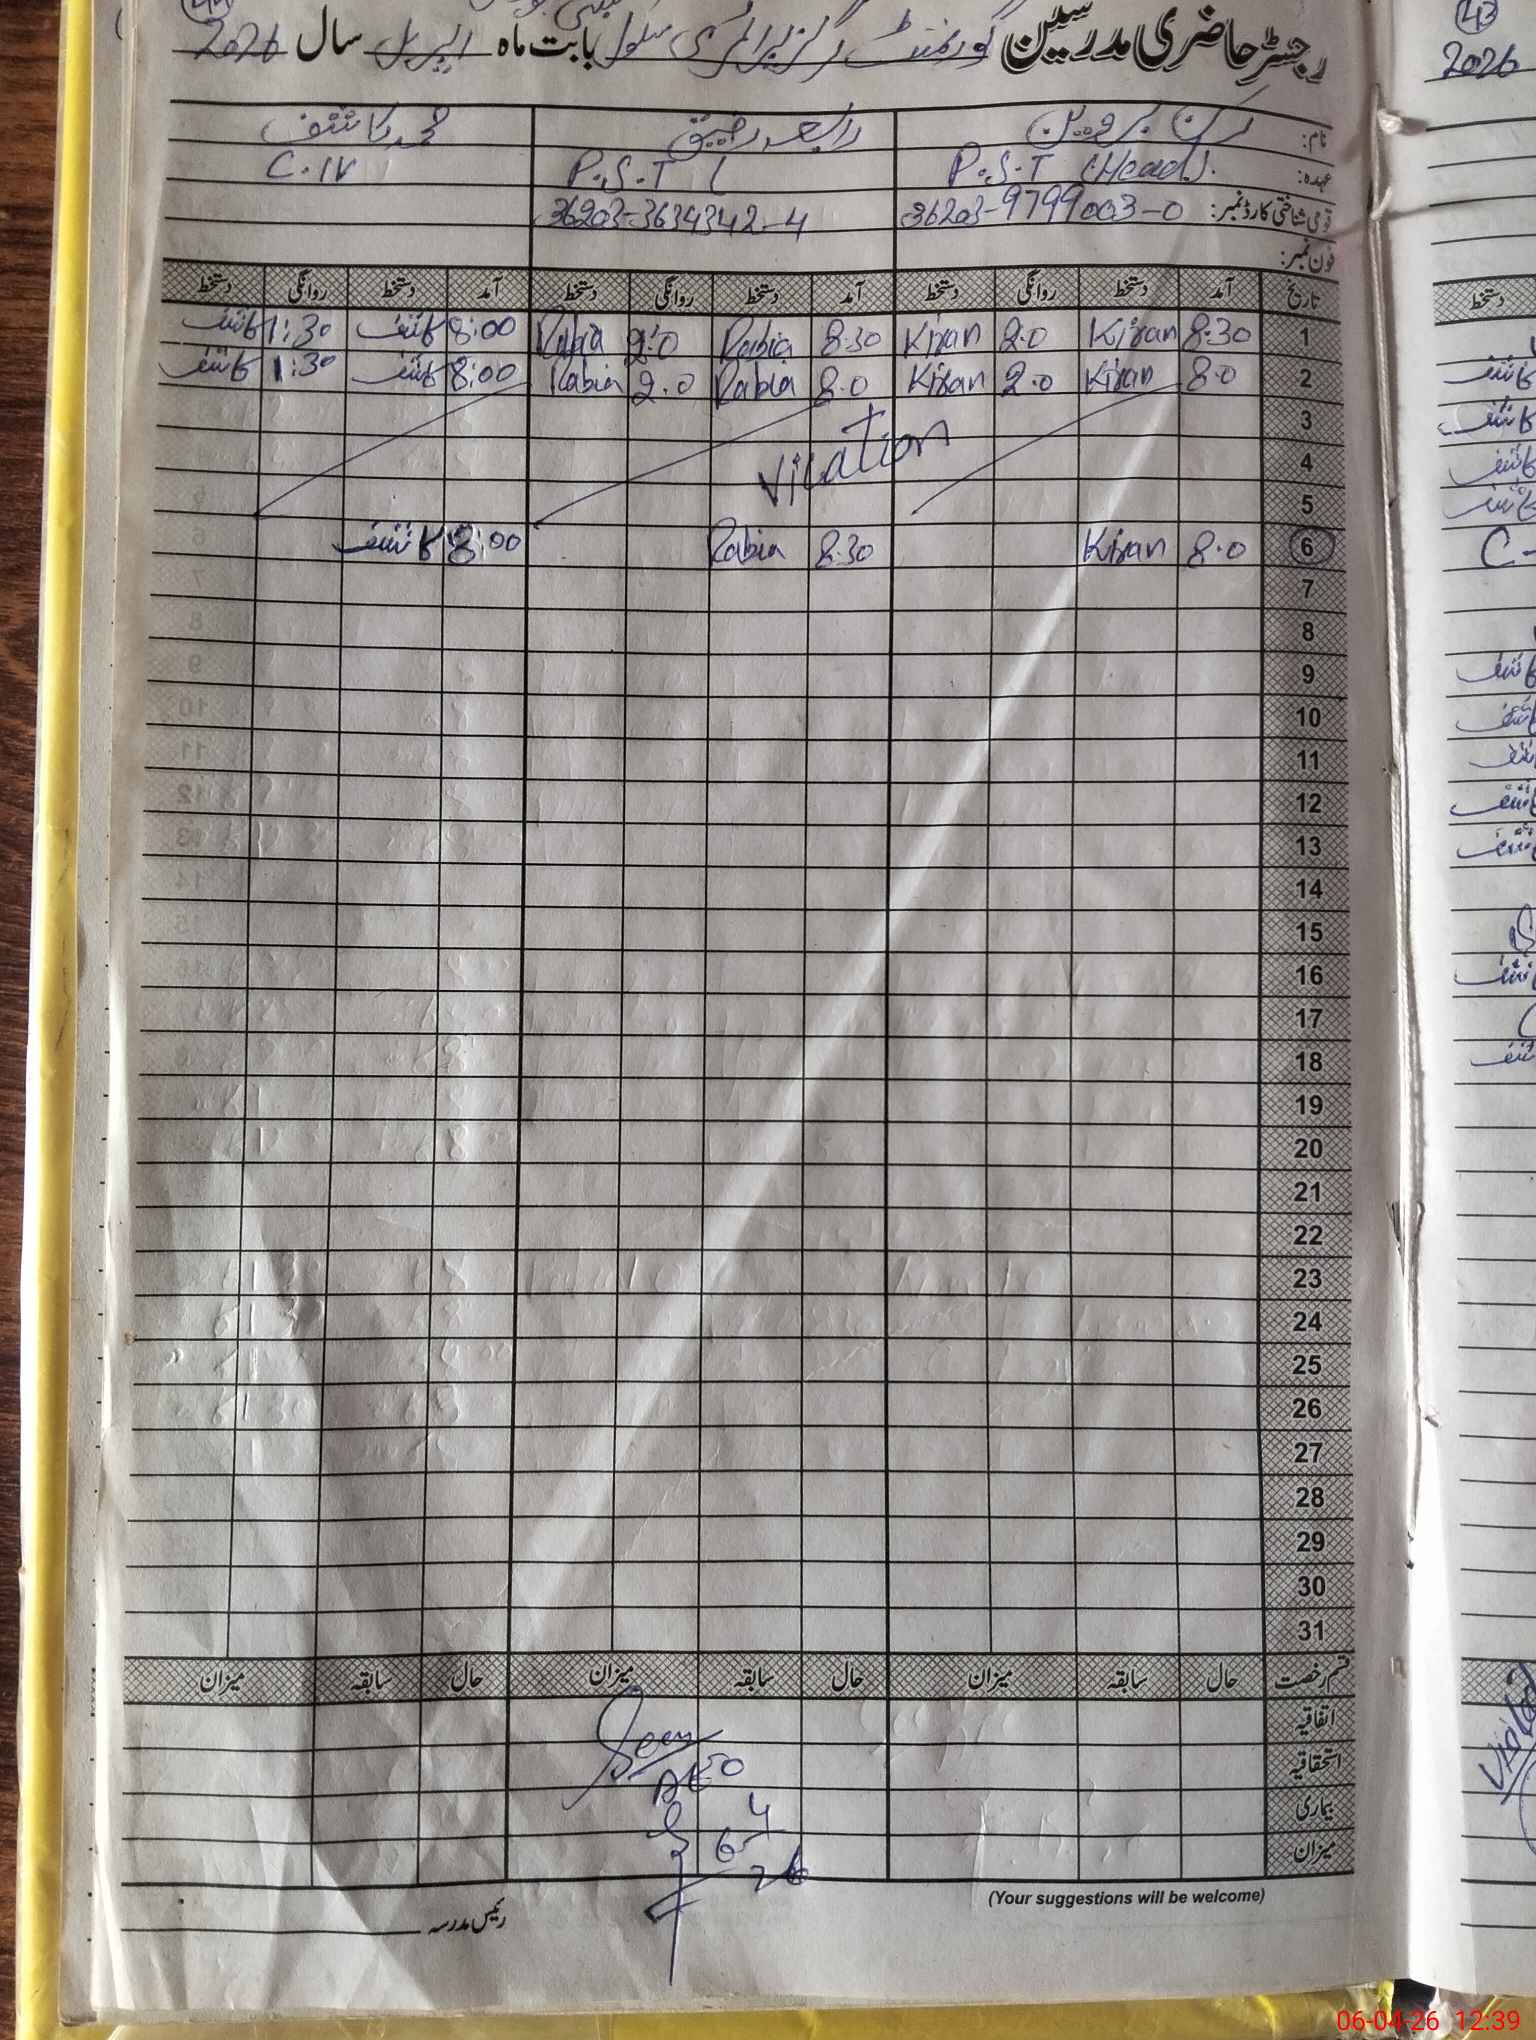 رجسٹر حاضری مدرسین گورنمنٹ گرلز پرائمری سکول بابت ماہ اپریل سال 2026
نام: کرن پروین رابعہ رفیق محمد کاشف
عہدہ: P.S.T (Head). P.S.T C.IV
قومی شناختی کارڈ نمبر: 36203-9799003-0 36203-3634342-4
فون نمبر:
تاریخ آمد دستخط روانگی دستخط آمد دستخط روانگی دستخط آمد دستخط روانگی دستخط
1 8:30 Kiran 2.0 Kiran 8.30 Rabia 2:0 Rabia 8:00 کاشف 1:30 کاشف
2 8.0 Kiran 2.0 Kiran 8.0 Rabia 2.0 Rabia 8:00 کاشف 1:30 کاشف
3
Vication
4
5
6 8.0 Kiran 8.30 Rabia 8:00 کاشف
7
8
9
10
11
12
13
14
15
16
17
18
19
20
21
22
23
24
25
26
27
28
29
30
31
قسم رخصت حال سابقہ میزان حال سابقہ میزان حال سابقہ میزان
اتفاقیہ
استحقاقیہ
بیماری
میزان
Seen
AEO
6 4 26
(Your suggestions will be welcome)
رئیس مدرسہ
43
2026
دستخط
06-04-26 12:39